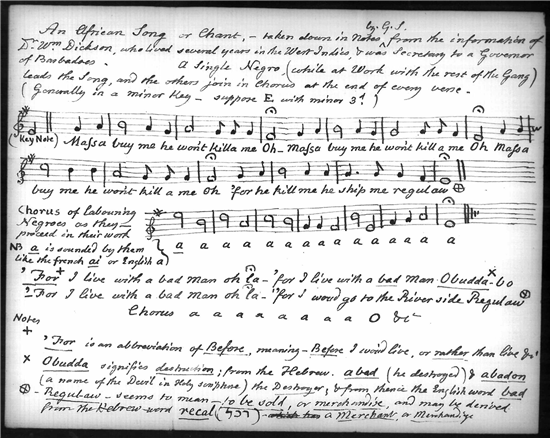 by G.S.
An African Song or Chant, – taken down in Notes, from the information of
Dr. Wm Dickson, who lived several years in the West Indies, & was Secretary to a Governor
of Barbadoes. A Single Negro, (while at Work with the rest of the Gang)
leads the Song, and the others join in Chorus at the end of every verse –
(Generally in a minor Key – suppose E with minor 3d.)
(Key Note) Massa buy me he wont killa me Oh – Massa buy me he wont kill a me Oh Massa
buy me he wont kill a me Oh 'for he kill me he ship me regulaw ⊗
Chorus of labouring
Negroes as they
proceed in their work
a a a a a a a a a a
NB a is sounded by them
like the french ai or English a)
'For + I live with a bad man oh la – 'for I live with a bad man Obudda x - bo
'For I live with a bad man oh la – 'for I woud go to the River side Regulaw ⊗
Chorus a a a a a a a O &c
Notes
+ 'For is an abbreviation of Before, meaning – Before I woud live, or rather than live &c
x Obudda signifies destruction; from the Hebrew. abad (he destroyed) & abadon
(a name of the Devil in Holy scripture) the Destroyer; & from thence the English word bad
⊗ – Regulaw – seems to mean – to be sold, or merchandise, and may be derived
from the Hebrew word recal (רכל) a Merchant, or Merchandize